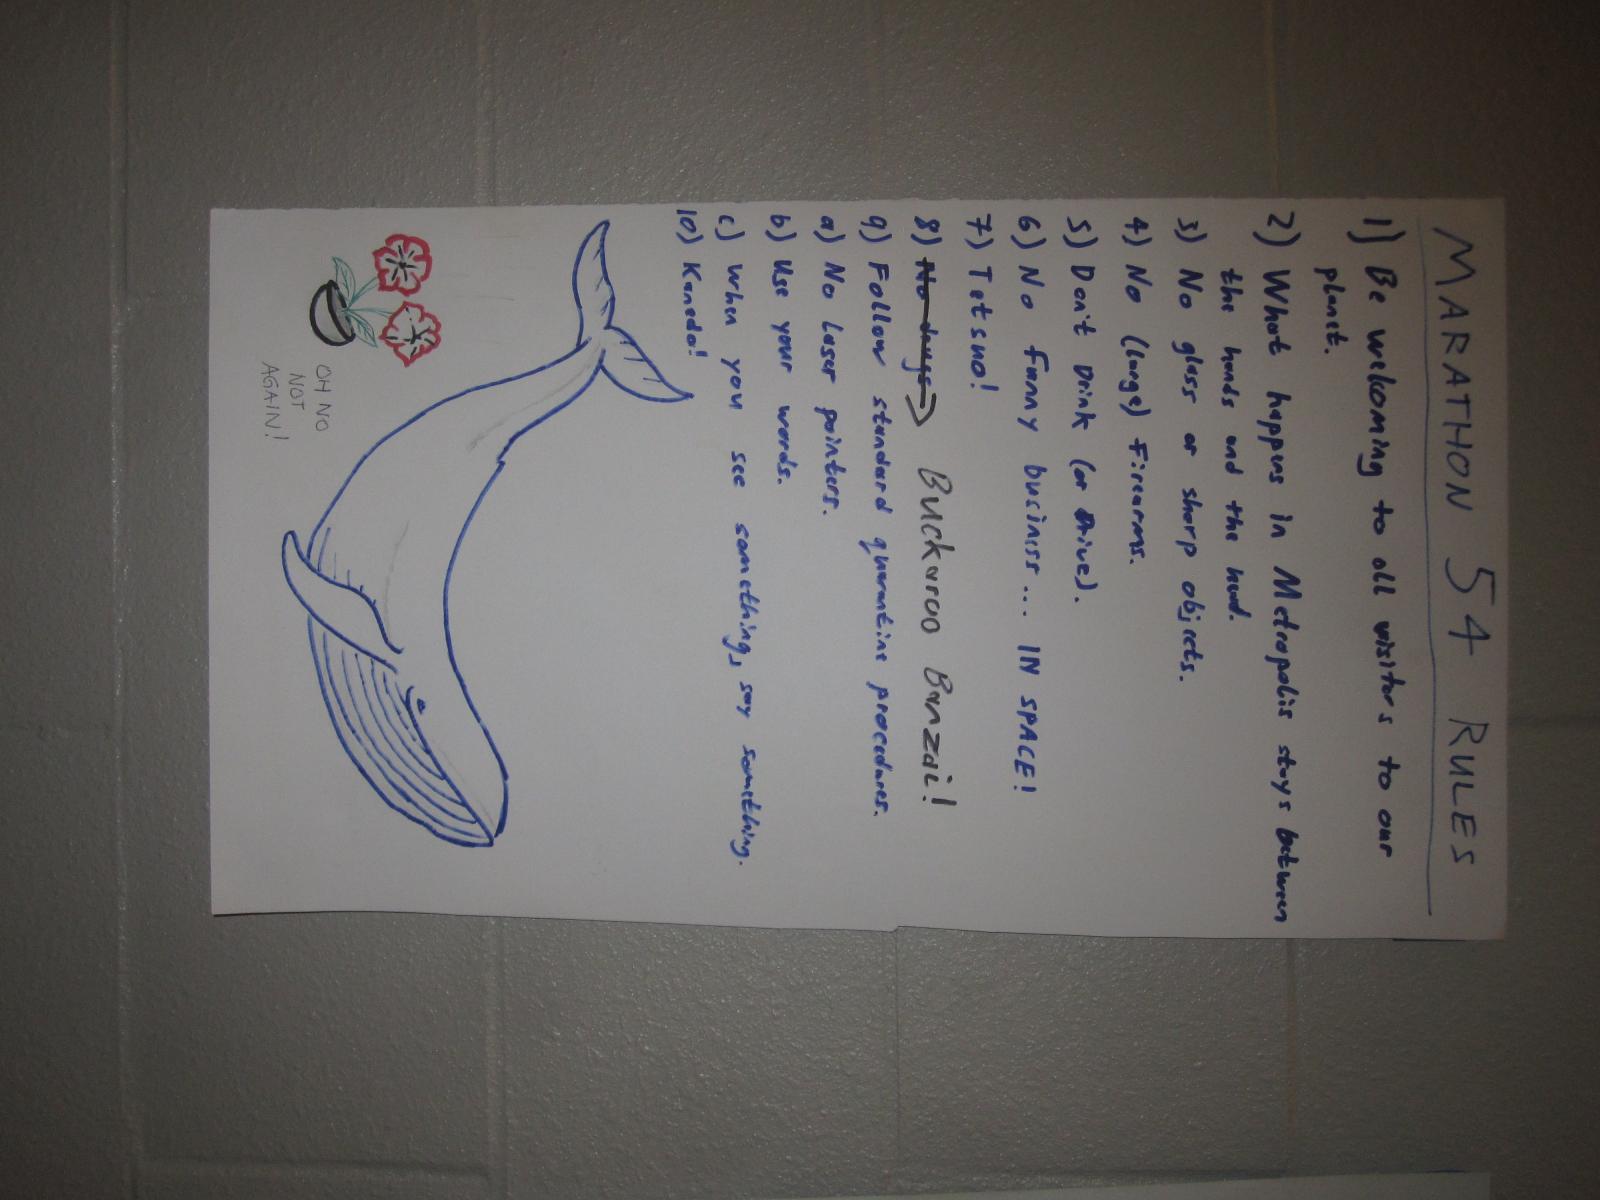 MARATHON 54 RULES
1) Be welcoming to all visitors to our
planet.
2) What happens in Metropolis stays between
the hands and the head.
3) No glass or sharp objects.
4) No (large) Firearms.
5) Don't Drink (or Drive).
6) No Funny business... IN SPACE!
7) Tetsuo!
8) No drugs Buckaroo Banzai!
9) Follow standard quarantine procedures.
a) No laser pointers.
b) Use your words.
c) When you see something, say something.
10) Kaneda!
OH NO
NOT
AGAIN!